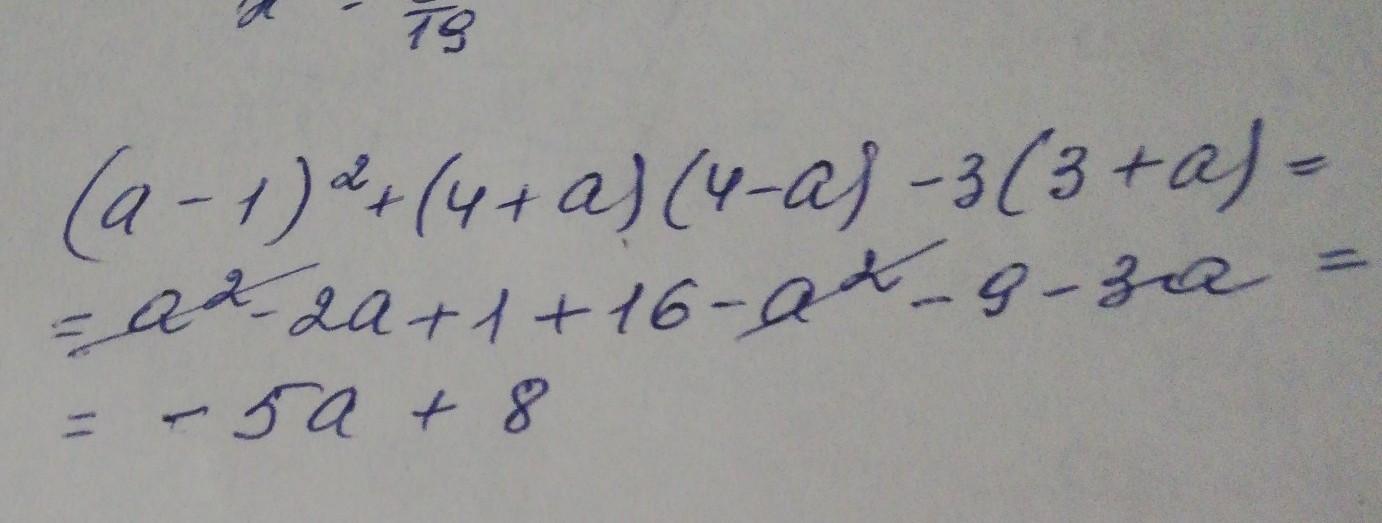 19
(a - 1)² + (4 + a)(4 - a) - 3(3 + a) =
= a² - 2a + 1 + 16 - a² - 9 - 3a =
= - 5a + 8